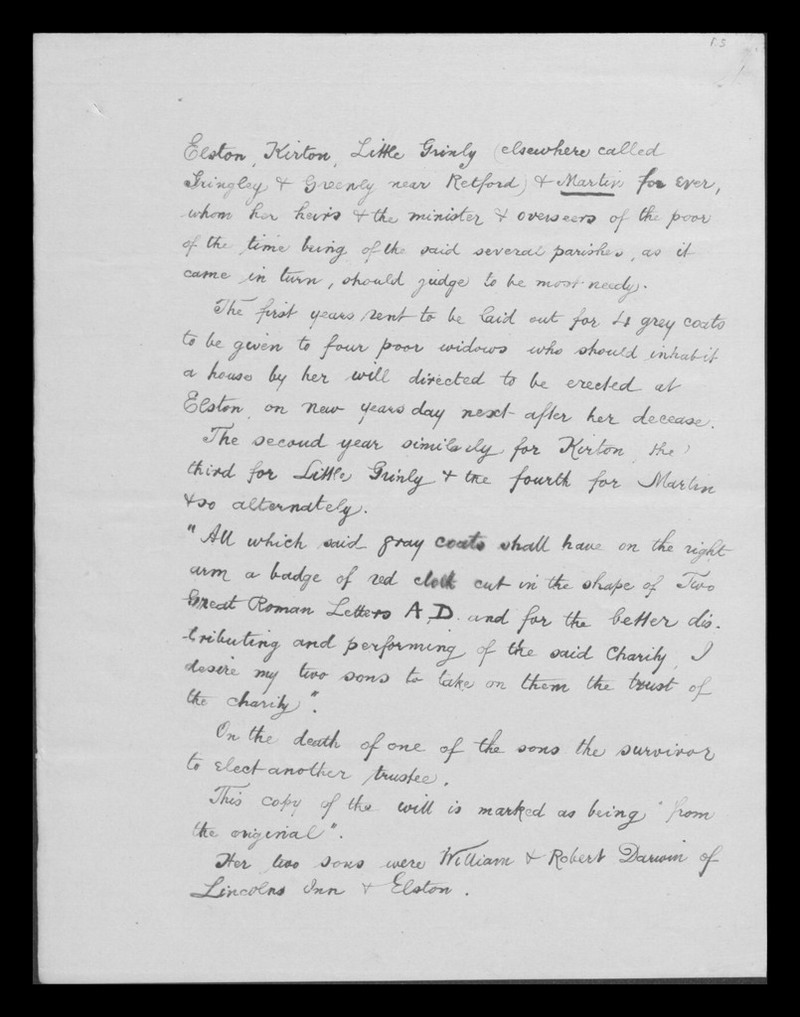 Elston, Kirton, Little Grinly (elsewhere called
Gringley & Greenly near Retford) & Martin for ever,
whom her heirs & the minister & overseers of the poor
of the time being of the said several parishes, as it
came in turn, should judge to be most needy.
The first years rent to be laid out for 4 grey coats
to be given to four poor widows who should inhabit
a house by her will directed to be erected at
Elston on new years day next after her decease.
The second year similarly for Kirton, the
third for Little Grinly & the fourth for Martin
& so alternately.
"All which said gray coats shall have on the right
arm a badge of red cloth cut in the shape of Two
Great Roman Letters A.D. and for the better dis-
-tributing and performing of the said Charity, I
desire my two sons to take on them the trust of
the charity".
On the death of one of the sons the survivor
to elect another trustee.
This copy of the will is marked as being "from
the original".
Her two sons were William & Robert Darwin of
Lincolns Inn & Elston.